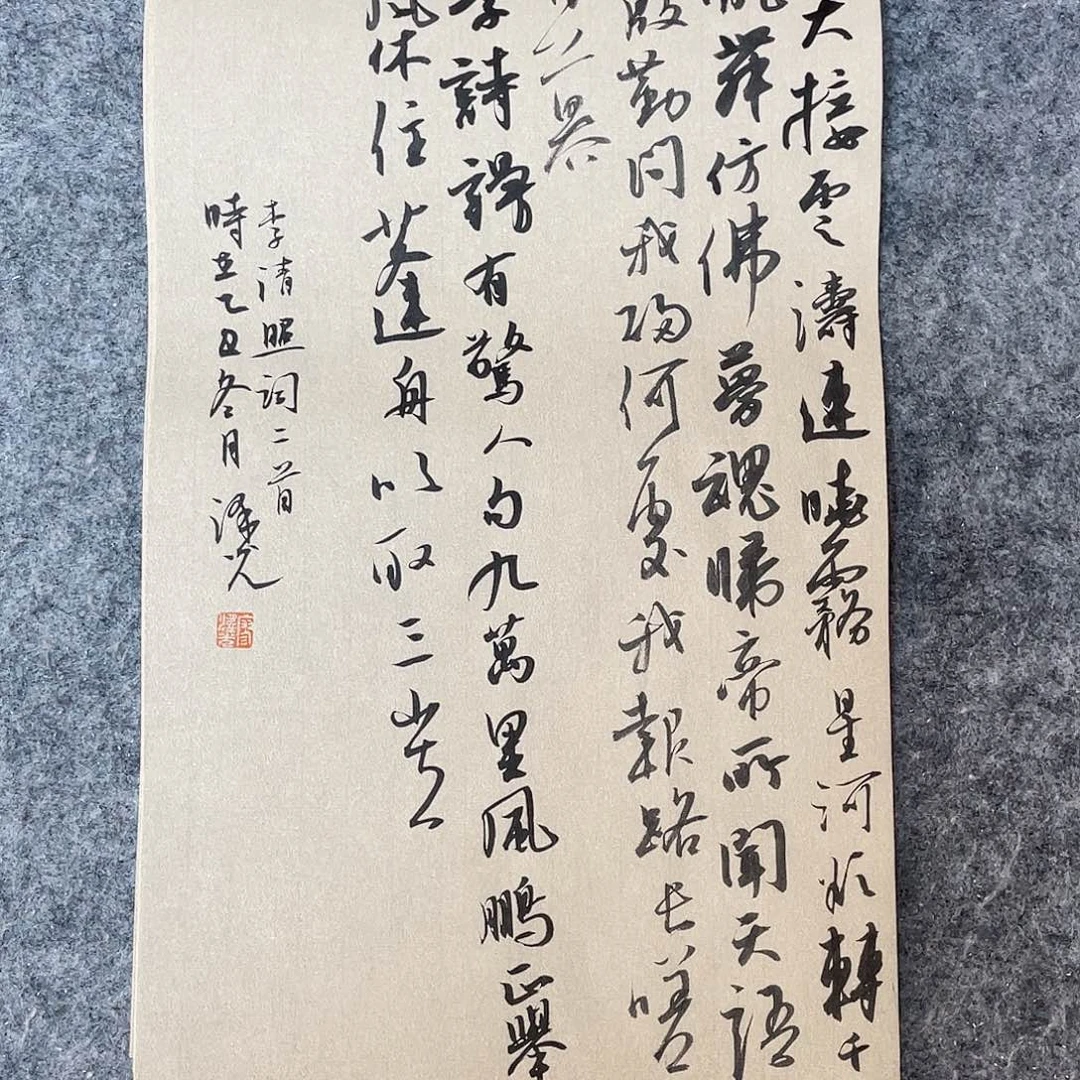 天接雲濤連曉霧星河欲轉千
帆舞仿佛夢魂歸帝所聞天語
殷勤問我歸何處我報路長嗟
日暮
學詩謾有驚人句九萬里風鵬正舉
風休住蓬舟吹取三山去
李清照詞二首
時在乙丑冬月澤光